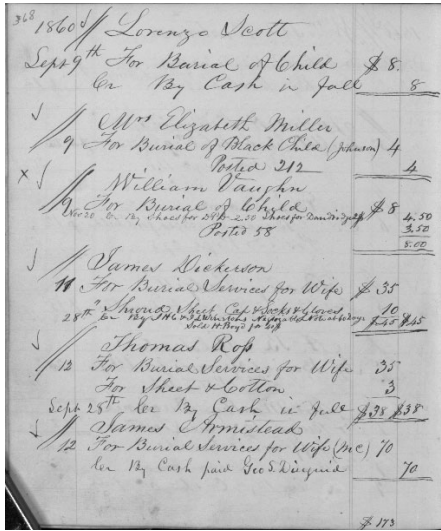 368
1860 Lorenzo Scott
Sept 9th For Burial of Child $8.
Cr By Cash in full 8
Mrs Elizabeth Miller
9 For Burial of Black Child (Johnson) 4
Posted 212 4
x William Vaughn
9 For Burial of Child $8
Cr By Shoes for 2.50 Shoes for 4.50
Posted 58 3.50
8.00
James Dickerson
11 For Burial Services for Wife $35
" Shroud Sheet Cap & Socks & Gloves 10
28th Cr By $45 $45
Thomas Ross
12 For Burial Services for Wife 35
For Sheet & Cotton 3
Sept 28th Cr By Cash in full $38 $38
James Armistead
12 For Burial Services for Wife (Mc) 70
Cr By Cash paid Geo S. Diuguid 70
$173